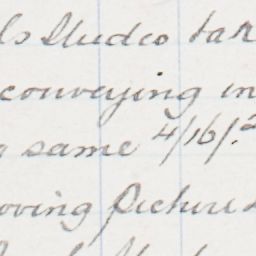 ls Studio tak
conveying in
same 4/16/.2
oving picture